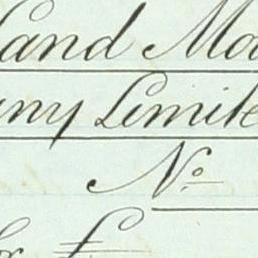 land Mo
any Limite
No
£